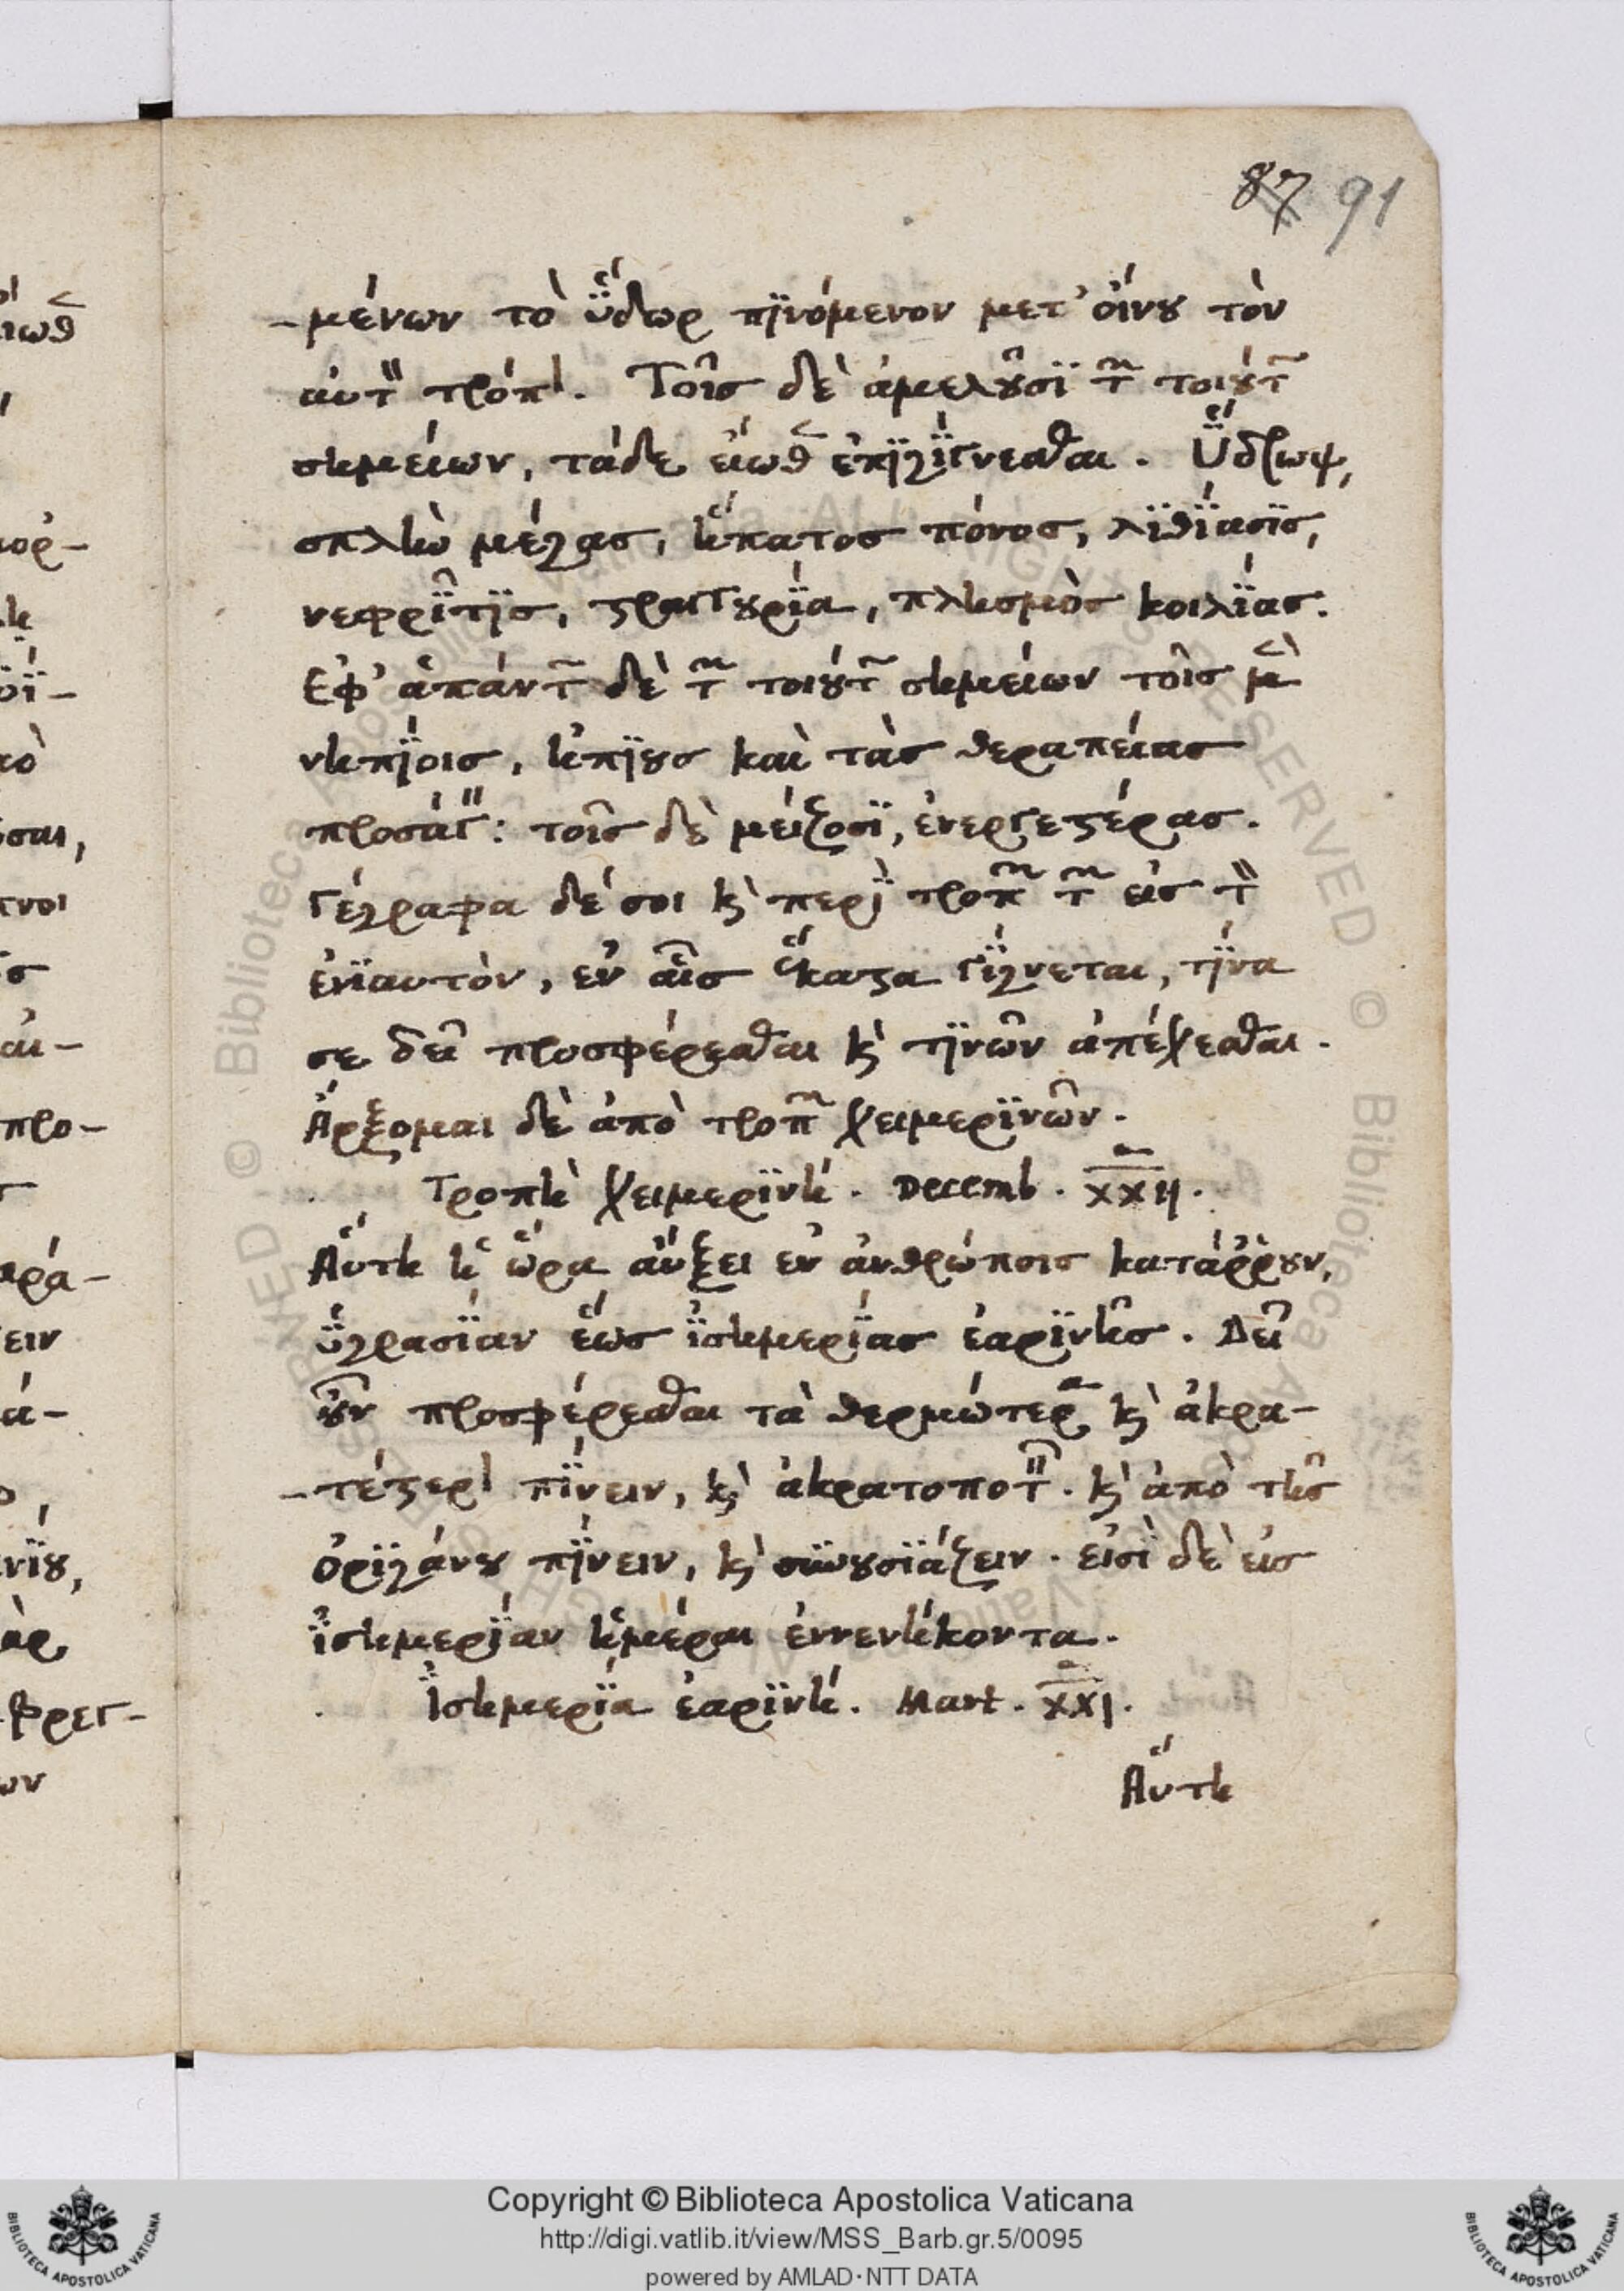 87 91
-μένων τὸ ὕδωρ πϊνόμενον μετ' οἴνου τὸν
αὐτὸν τρόπον. Τοῖς δὲ ἀμελοῦσϊ τῶν τοιούτων
σημείων, τάδε εἴωθεν ἐπϊγΐγνεσθαι. Ὕδρωψ,
σπλὴν μέγας, ἥπατος πόνος, λϊθΐασϊς,
νεφρῖτϊς, στραγγουρΐα, πλησμὸς κοιλΐας.
Ἐφ' ἁπάντων δὲ τῶν τοιούτων σημείων τοῖς μὲν
νηπΐοις, ἠπΐους καὶ τὰς θεραπείας
προσάγειν: τοῖς δὲ μείζοσϊ, ἐνεργεστέρας.
Γέγραφα δέ σοι καὶ περὶ τροπῶν τῶν εἰς τὸν
ἐνϊαυτὸν, ἐν αἷς ἕκαστα γΐγνεται, τΐνα
σε δεῖ προσφέρεσθαι καὶ τϊνῶν ἀπέχεσθαι.
Ἄρξομαι δὲ ἀπὸ τροπῶν χειμερϊνῶν.
Τροπὴ χειμερϊνή. Decemb. XXII.
Αὕτη ἡ ὥρα αὔξει ἐν ἀνθρώποις κατάῤῥουν,
ὑγρασΐαν ἕως ἰσημερΐας ἐαρϊνῆς. Δεῖ
οὖν προσφέρεσθαι τὰ θερμώτερα καὶ ἀκρα-
-τέστερον πΐνειν, καὶ ἀκρατοποτεῖν. καὶ ἀπὸ τῆς
ὀρϊγάνου πΐνειν, καὶ συνουσϊάζειν. εἰσὶ δὲ εἰς
ἰσημερΐαν ἡμέραι ἐννενήκοντα.
Ἰσημερΐα ἐαρϊνή. Mart. XXI.
Αὕτη
Copyright © Biblioteca Apostolica Vaticana
http://digi.vatlib.it/view/MSS_Barb.gr.5/0095
powered by AMLAD·NTT DATA